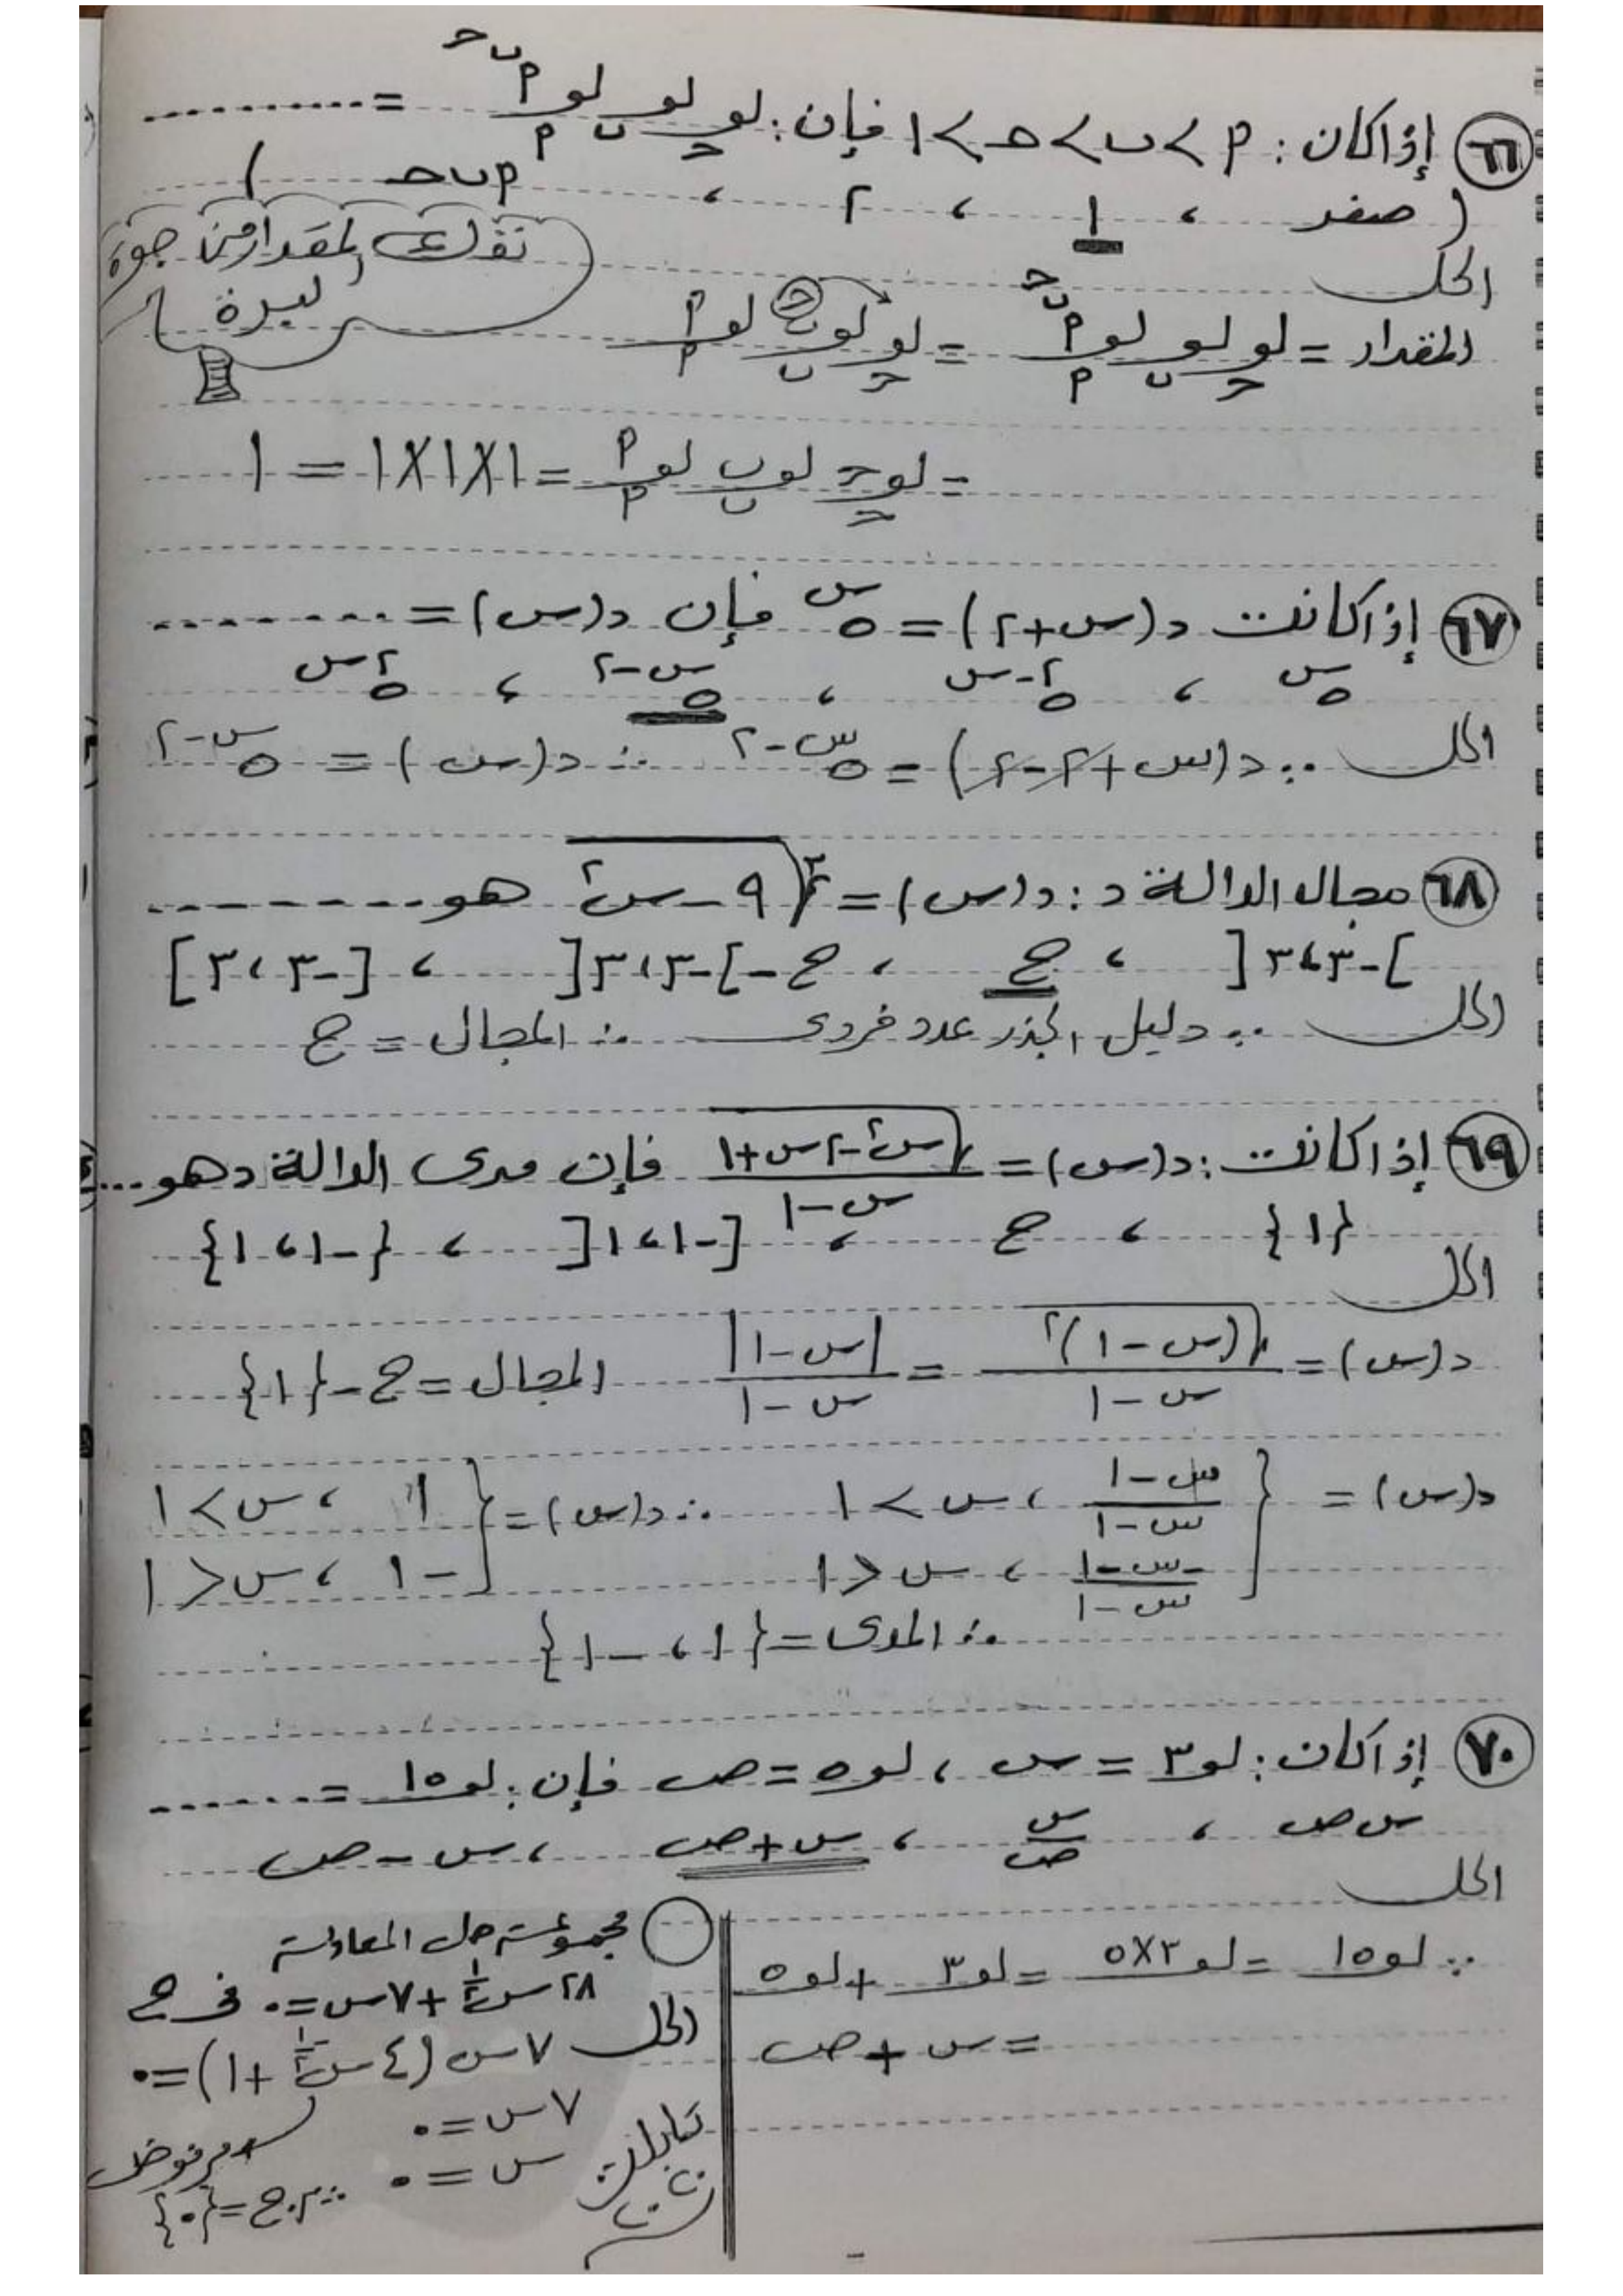 ٦٦ إذا كان : ‎م > ب > حـ > ١ فإن : لو_حـ لو_ب لو_م م^(ب^حـ) = ..........
( صفر ، ١ ، ٢ ، م ب حـ )
الحل
نفك المقدار من جوه لبرة
المقدار = لو_حـ لو_ب لو_م م^(ب^حـ) = لو_حـ لو_ب ب^حـ لو_م م
= لو_حـ حـ لو_ب ب لو_م م = ١×١×١ = ١
٦٧ إذا كانت د(س+٢) = ٥^س فإن د(س) = ........
٥^س ، ٥^(٢-س) ، ٥^(س-٢) ، ٥^(٢س)
الحل ∵ د(س+٢-٢) = ٥^(س-٢) ∴ د(س) = ٥^(س-٢)
٦٨ مجال الدالة د : د(س) = ∛(٩-س²) هو ........
]-٣،٣[ ، ح ، ح-]-٣،٣[ ، [-٣،٣]
الحل ∵ دليل الجذر عدد فردى ∴ المجال = ح
٦٩ إذا كانت : د(س) = √(س²-٢س+١) / (س-١) فإن مدى الدالة د هو ...
{١} ، ح ، [-١،١[ ، {-١،١}
الحل
د(س) = √((س-١)²) / (س-١) = |س-١| / (س-١) المجال = ح-{١}
د(س) = { (س-١)/(س-١) ، س > ١ ∴ د(س) = { ١ ، س > ١
(-س-١)/(س-١) ، س < ١ -١ ، س < ١
∴ المدى = {١ ، -١}
٧٠ إذا كان : لو٣ = س ، لو٥ = ص فإن : لو١٥ = .......
س ص ، س/ص ، س+ص ، س-ص
الحل
∵ لو١٥ = لو٣×٥ = لو٣ + لو٥
= س + ص
مجموعة حل المعادلة
٢٨س^(١/٢)+٧س=٠ فى ح
الحل ٧س(٤س^(-١/٢)+١)=٠
٧س=٠
مرفوض
س=٠ ∴ م.ح={٠}